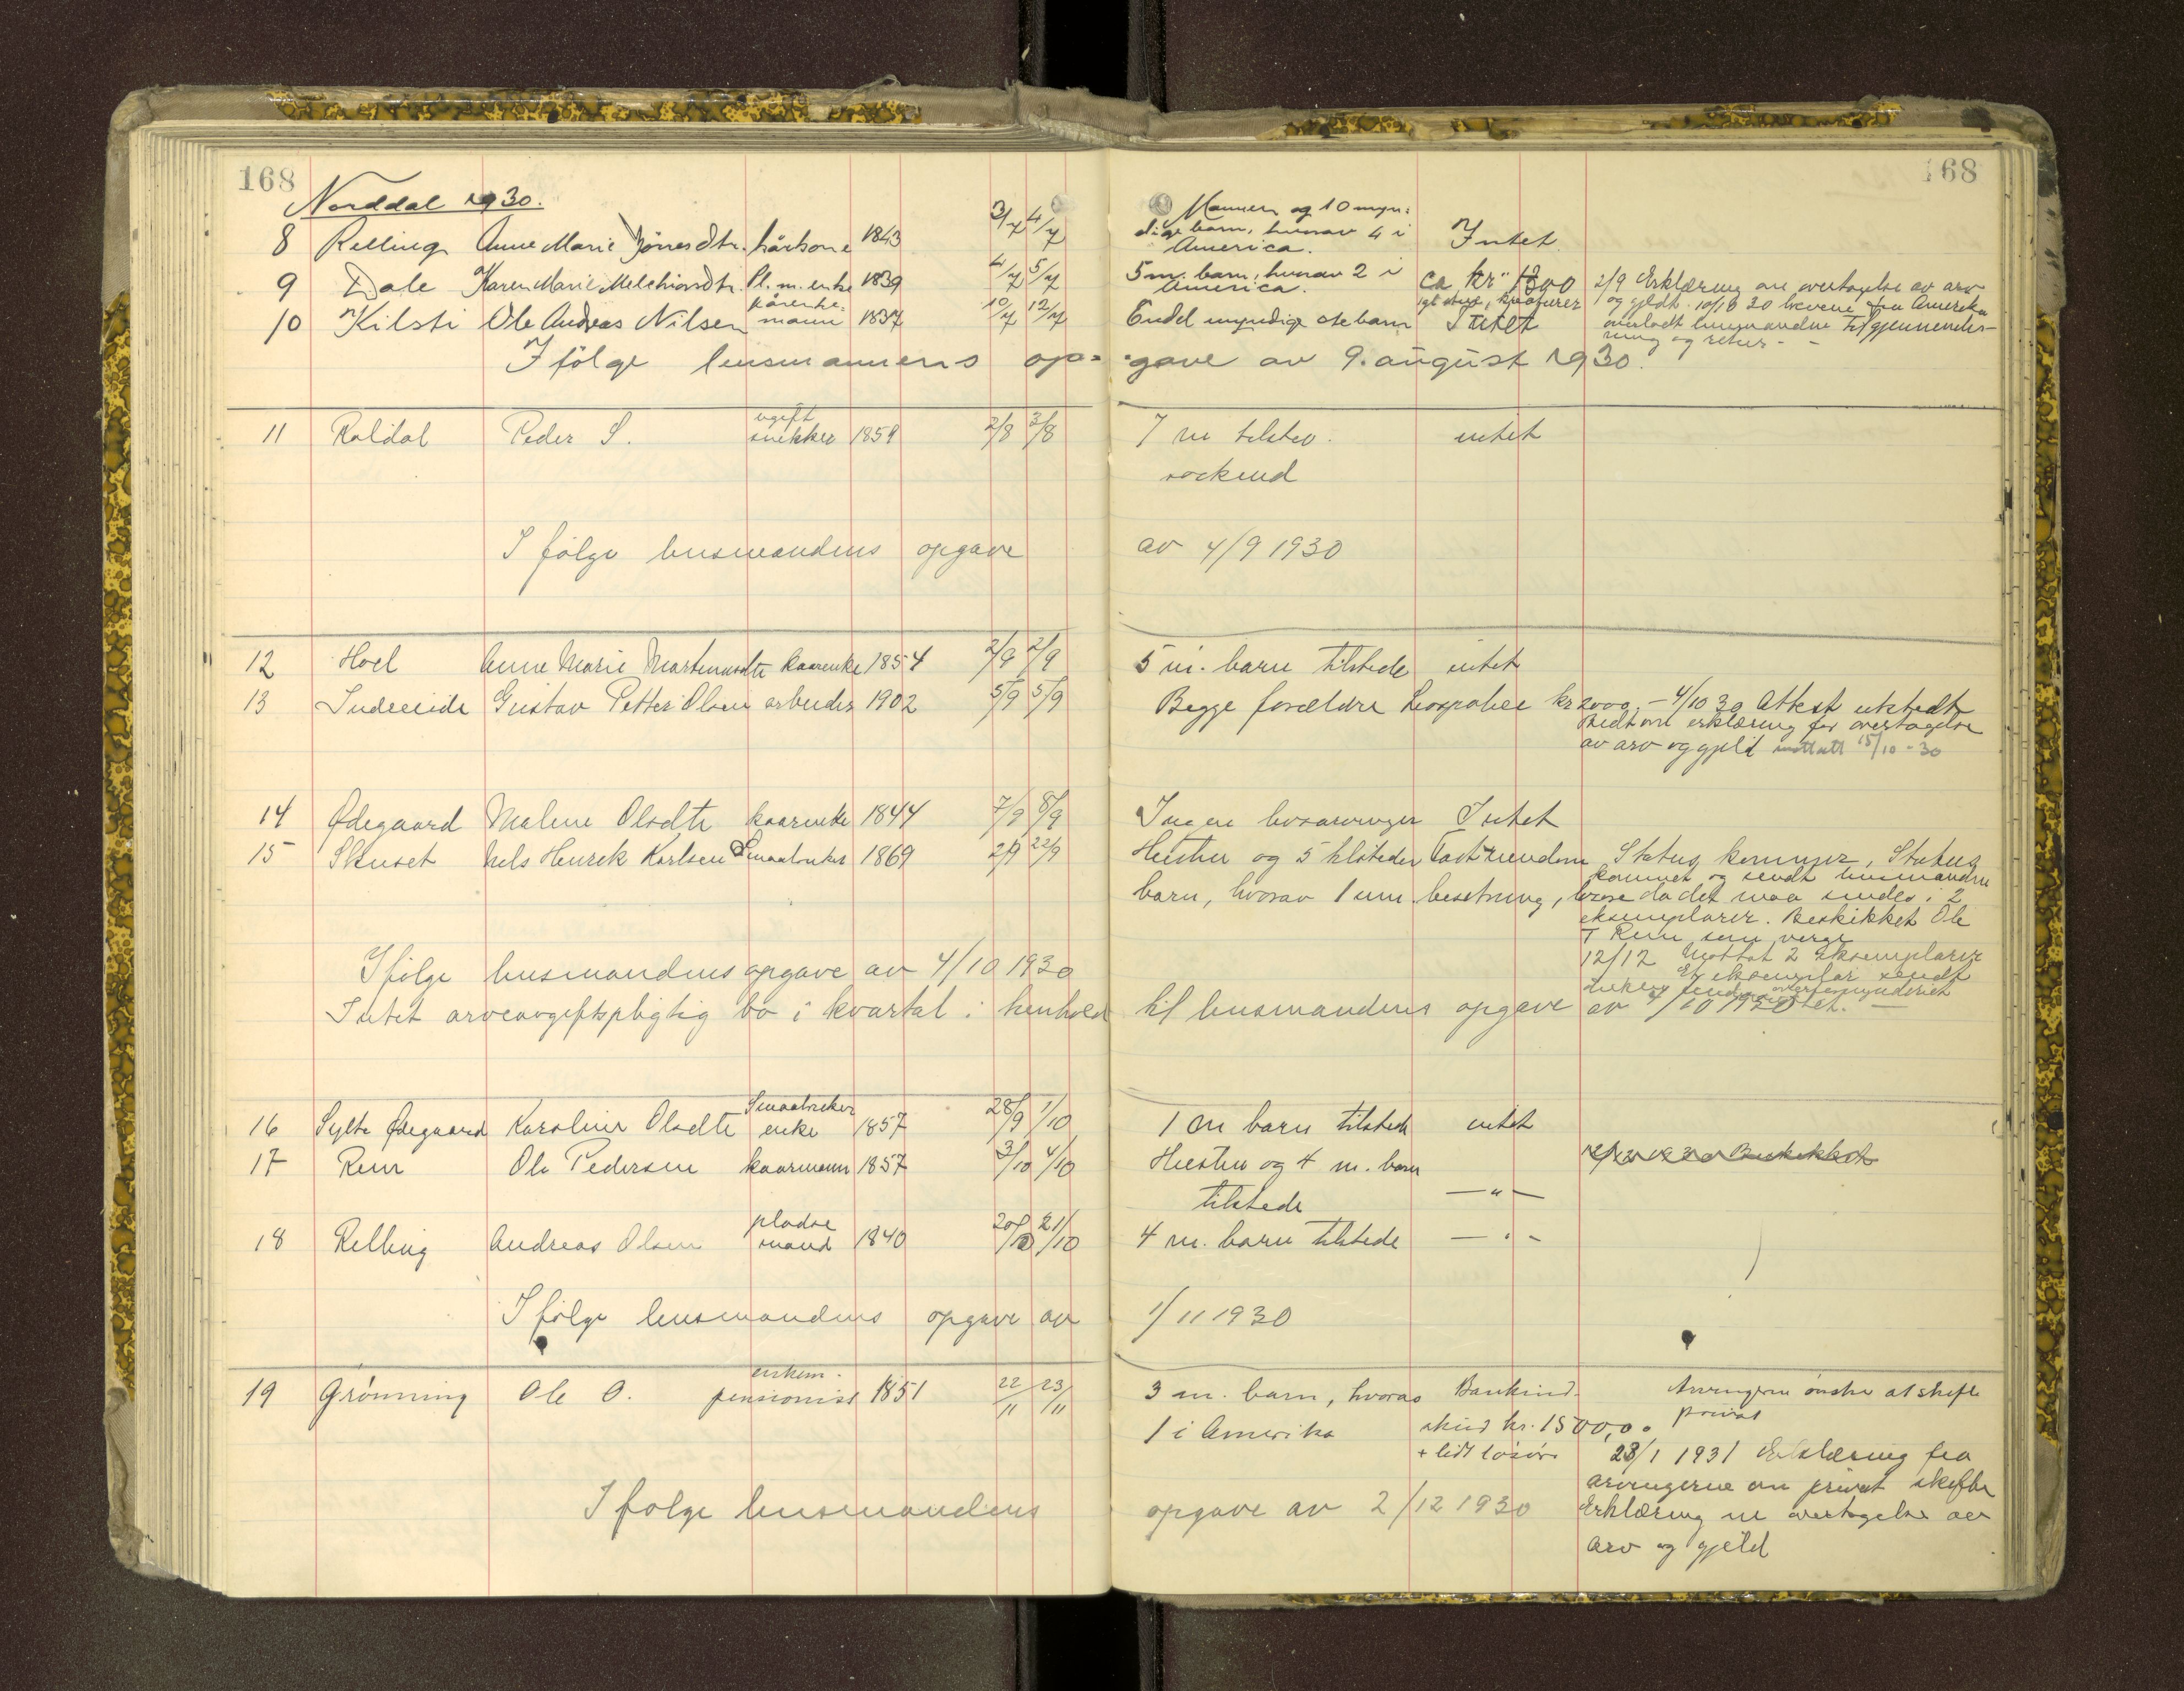 168
168
Norddal 1930.
8 Relling Anne Marie Jönsesdtr. kårkone 1843 3/7 4/7 Mannen og 10 myn:
dige barn, hvorav 4 i
America. Intet
9 Dale Karen Marie Melchiorsdtr. Pl. m. enke 1839 4/7 5/7 5 m. barn, hvorav 2 i
America. ca kr 1300 2/9 Erklæring om overtagelse av arv
og gjeld. 10/10 30 brevene fra Amerika
oversendt lensmanden til gjennemles-
ning og retur -
10 Kilsti Ole Andreas Nilsen kårenke-
mann 1837 10/7 12/7 Endel myndige stebarn Intet
Ifölge lensmannens op- gave av 9. august 1930.
11 Raldal Peder S. ugift
snekker 1859 2/8 3/8 7 m tilsted. intet
søskend
I følge lensmandens opgave av 4/9 1930
12 Hoel Anne Marie Martinusdtr kaarenke 1854 2/9 2/9 5 m. barn tilstede intet
13 Indreeide Gustav Petter Olsen arbeider 1902 5/9 5/9 Begge forældre kr 2000,- 4/10 30 Attest utstedt
Bedt om erklæring for overtagelse
av arv og gjeld mottatt 15/10-30
14 Ødegaard Malene Olsdtr kaarenke 1844 7/9 8/9 Ingen livsarvinger Intet
15 Skuset Nels Henrik Karlsen Smaabruker 1869 21/9 22/9 Hustru og 5 tilstedev. Fast eiendom Status kommer, Status
kommet og sendt lensmanden
barn, hvorav 1 um. besetning, løsøre da det maa sendes i 2
eksemplarer. Beskikket Ole
T Rem som verge
12/12 Mottat 2 Eksemplarer
Et eksemplar sendt
overformynderiet
Ifölge lensmandens opgave av 4/10 1930
Intet arveavgiftspligtig bo i kvartal i henhold til lensmandens opgave av 4/10 1930
16 Sylte Ødegaard Karoline Olsdtr Smaabruker
enke 1857 28/9 1/10 1 m barn tilstede intet
17 Rem Ole Pedersen kaarmann 1857 3/10 4/10 Hustru og 4 m. barn
tilstede — " —
18 Relling Andreas Olsen plads
mand 1840 20/10 21/10 4 m. barn tilstede — " —
I følge lensmandens opgave av 1/11 1930
19 Grønning Ole O. enkem.
pensionist 1851 22/11 23/11 3 m. barn, hvorav Bankind- Arvingerne ønsker at skifte
privat
1 i Amerika skud kr. 15000,00
+ lidt løsøre 28/1 1931 Erklæring fra
arvingerne om privat skifte
I følge lensmandens opgave av 2/12 1930 Erklæring om overtagelse av
arv og gjeld